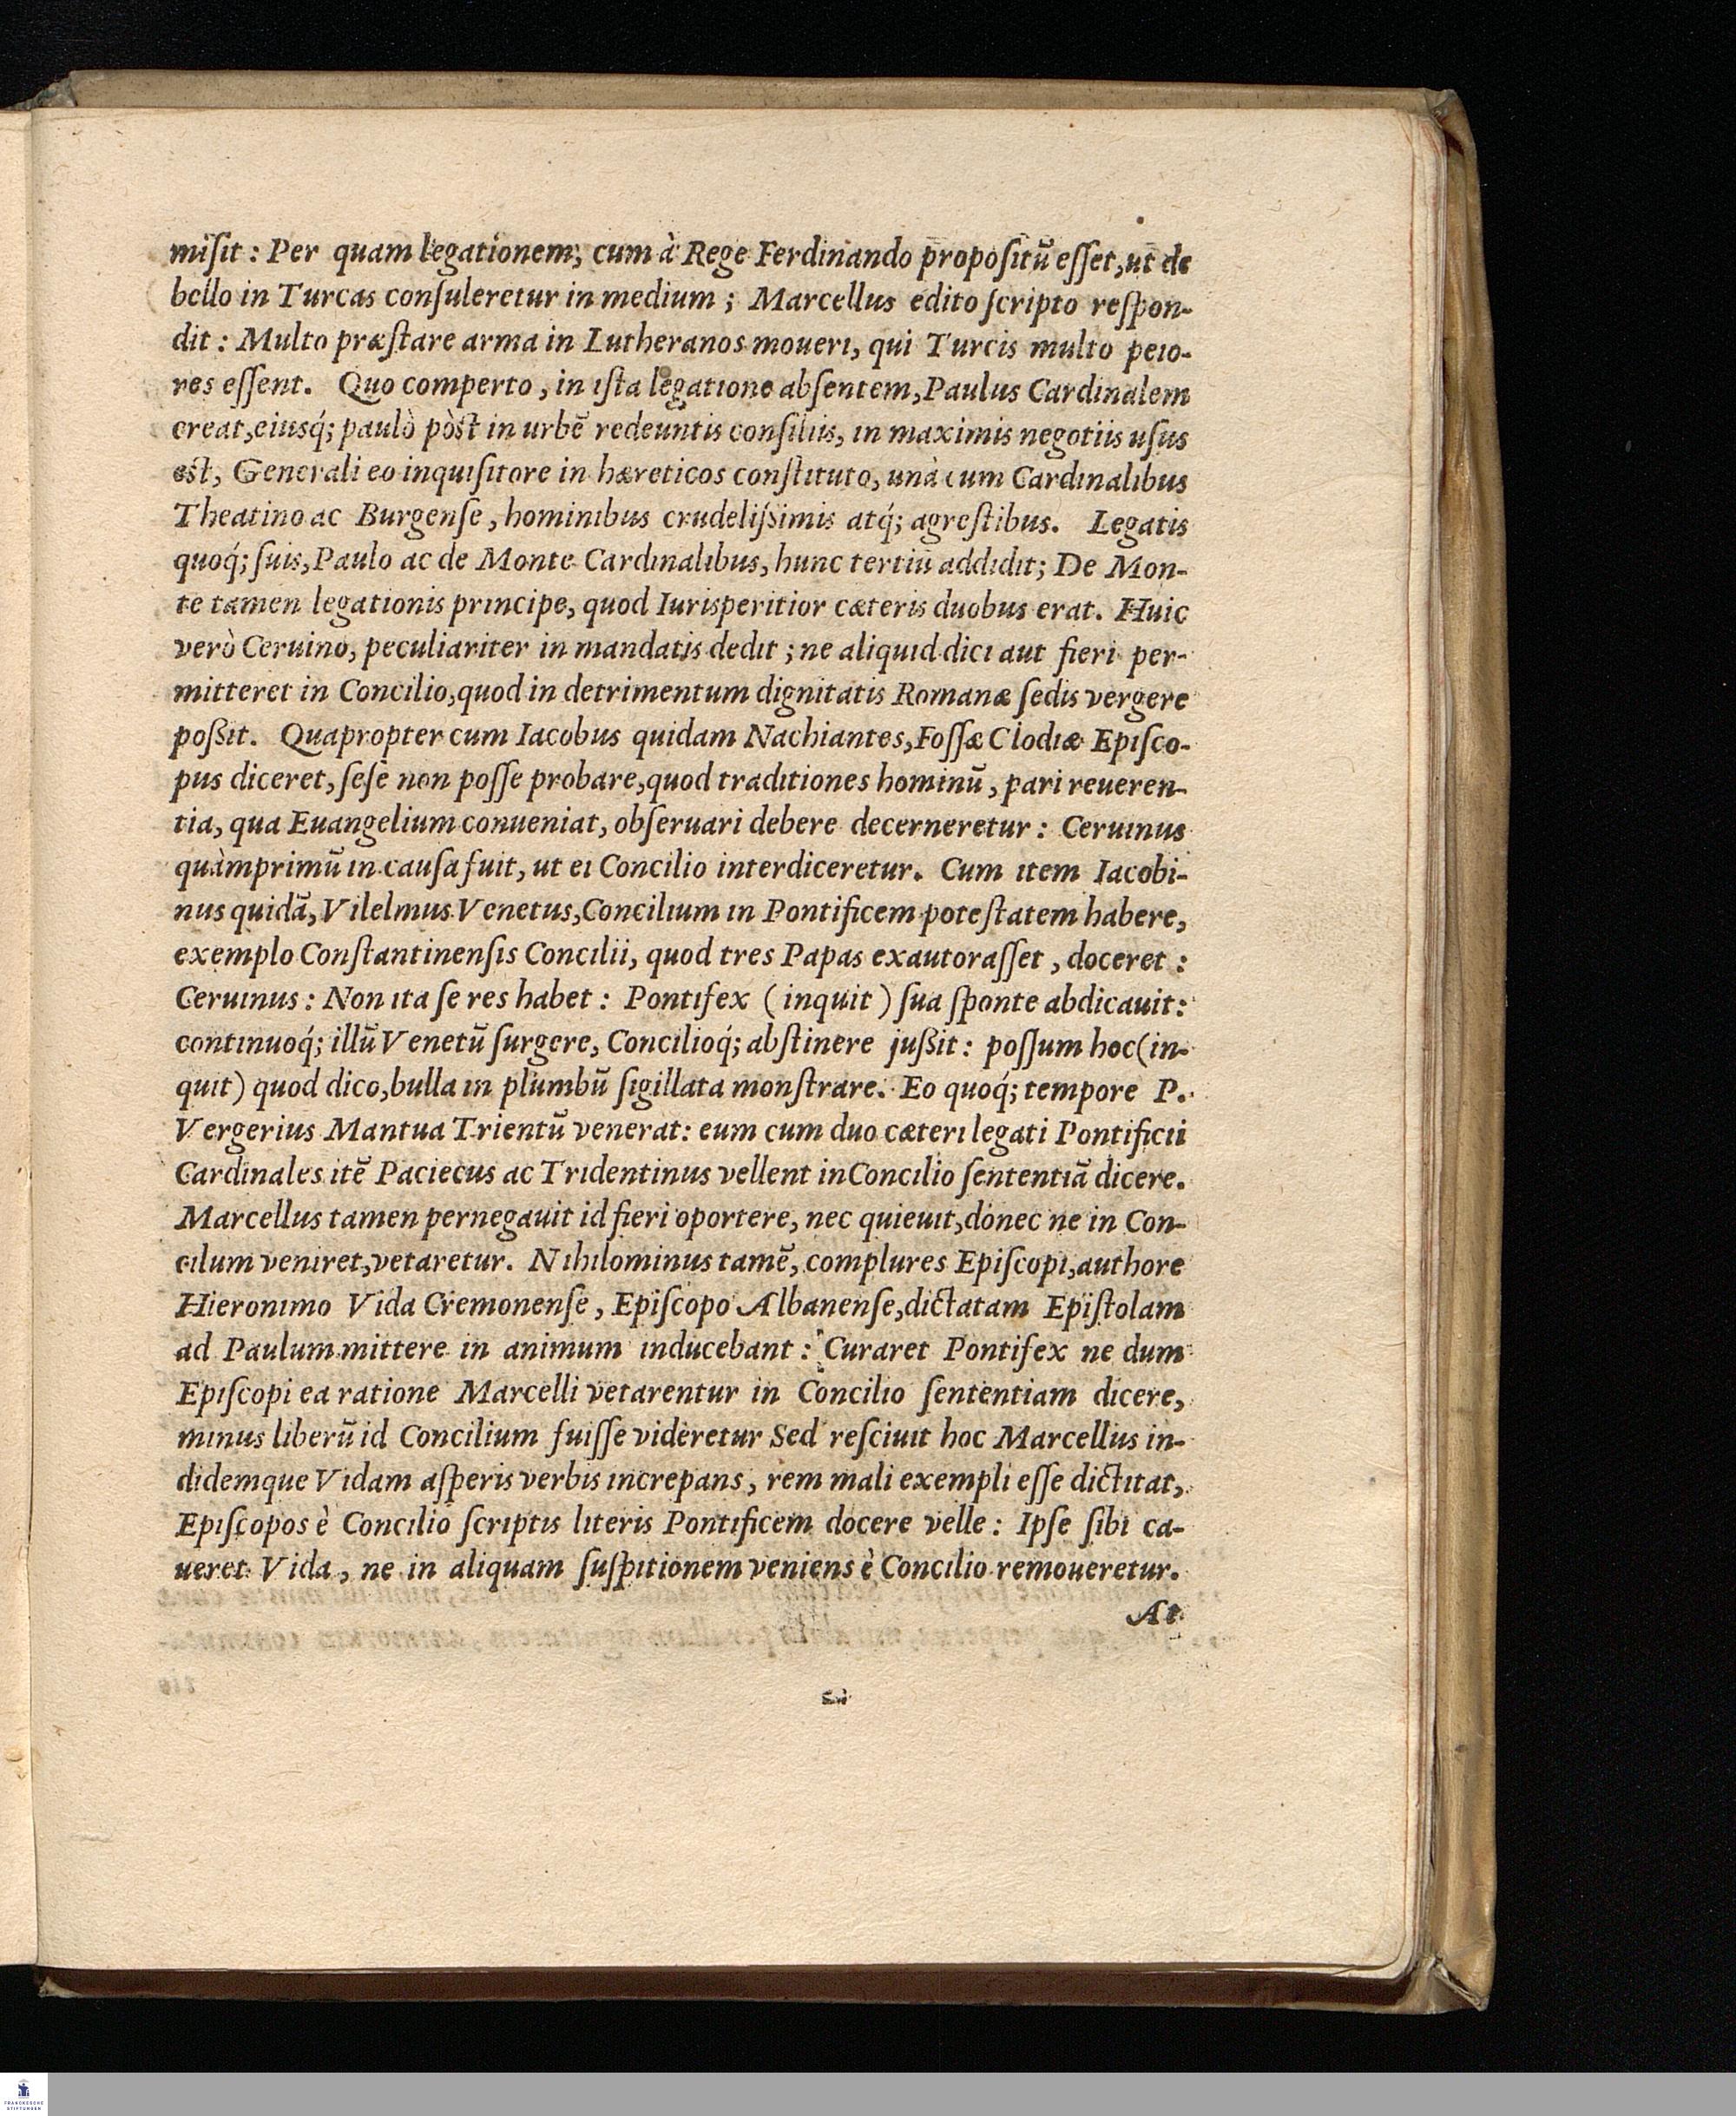 miſit: Per quam legationem, cum à Rege Ferdinando propoſitū eſſet, ut de
bello in Turcas conſuleretur in medium; Marcellus edito ſcripto reſpon-
dit: Multo præſtare arma in Lutheranos moueri, qui Turcis multo peio-
res eſſent. Quo comperto, in iſta legatione abſentem, Paulus Cardinalem
creat, eiusq́; paulò pòſt in urbē redeuntis conſiliis, in maximis negotiis uſus
eſt, Generali eo inquiſitore in hæreticos conſtituto, unà cum Cardinalibus
Theatino ac Burgenſe, hominibus crudeliſsimis atq́; agreſtibus. Legatis
quoq́; ſuis, Paulo ac de Monte Cardinalibus, hunc tertiū addidit; De Mon-
te tamen legationis principe, quod Iurisperitior cæteris duobus erat. Huic
verò Ceruino, peculiariter in mandatis dedit; ne aliquid dici aut fieri per-
mitteret in Concilio, quod in detrimentum dignitatis Romanæ ſedis vergere
poßit. Quapropter cum Iacobus quidam Nachiantes, Foſſæ Clodiæ Epiſco-
pus diceret, ſeſe non poſſe probare, quod traditiones hominū, pari reueren-
tia, qua Euangelium conueniat, obſeruari debere decerneretur: Ceruinus
quàmprimū in cauſa fuit, ut ei Concilio interdiceretur. Cum item Iacobi-
nus quidā, Vilelmus Venetus, Concilium in Pontificem poteſtatem habere,
exemplo Conſtantinenſis Concilii, quod tres Papas exautoraſſet, doceret:
Ceruinus: Non ita ſe res habet: Pontifex (inquit) ſua ſponte abdicauit:
continuoq́; illū Venetū ſurgere, Concilioq́; abſtinere jußit: poſſum hoc (in-
quit) quod dico, bulla in plumbū ſigillata monſtrare. Eo quoq́; tempore P.
Vergerius Mantua Trientū venerat: eum cum duo cæteri legati Pontificii
Cardinales itē Paciecus ac Tridentinus vellent in Concilio ſententiā dicere.
Marcellus tamen pernegauit id fieri oportere, nec quieuit, donec ne in Con-
cilum veniret, vetaretur. Nihilominus tamē, complures Epiſcopi, authore
Hieronimo Vida Cremonenſe, Epiſcopo Albanenſe, dictatam Epiſtolam
ad Paulum mittere in animum inducebant: Curaret Pontifex ne dum
Epiſcopi ea ratione Marcelli vetarentur in Concilio ſententiam dicere,
minus liberū id Concilium fuiſſe videretur Sed reſciuit hoc Marcellus in-
didemque Vidam aſperis verbis increpans, rem mali exempli eſſe dictitat,
Epiſcopos è Concilio ſcriptis literis Pontificem docere velle: Ipſe ſibi ca-
ueret Vida, ne in aliquam ſuſpitionem veniens è Concilio remoueretur.
At
FRANCKESCHE
STIFTUNGEN